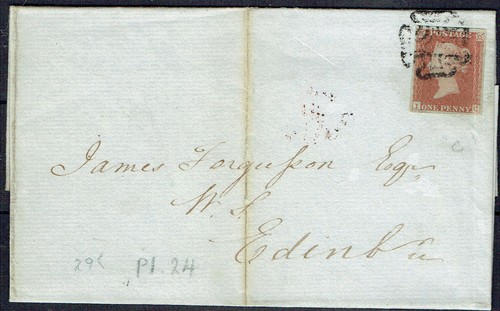 POSTAGE
ONE PENNY
James Fergusson Esqr
W.S.
Edinbr
Pl. 24